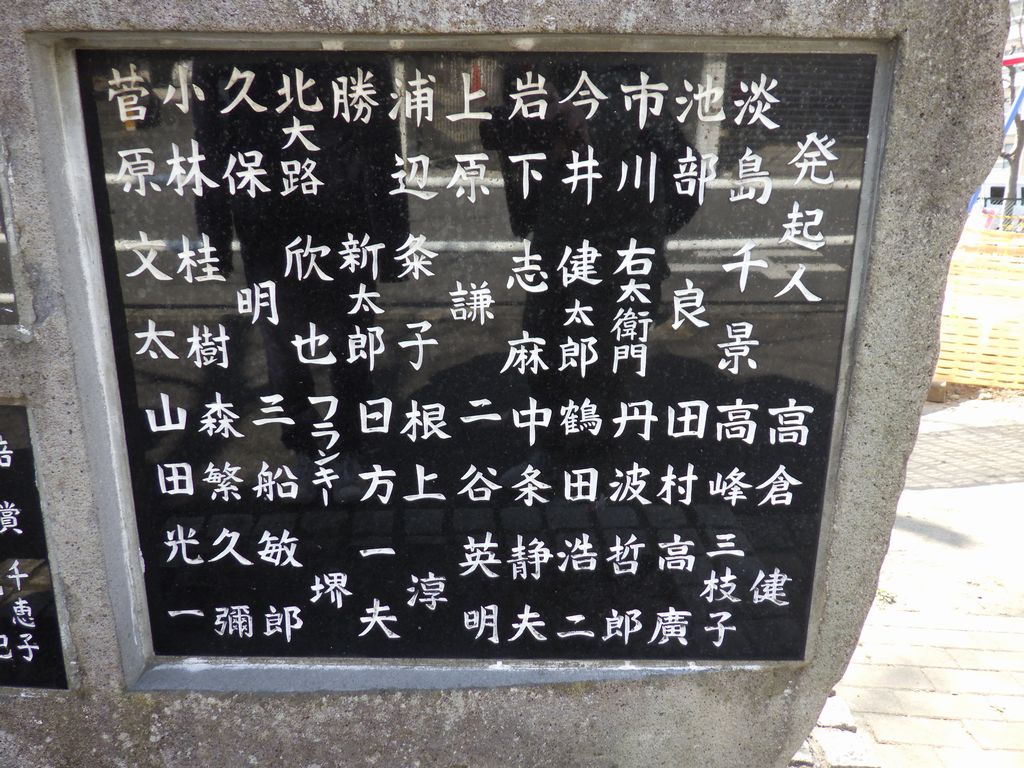 発起人
淡島千景
池部良
市川右太衛門
今井健太郎
岩下志麻
上原謙
浦辺粂子
勝新太郎
北大路欣也
久保明
小林桂樹
菅原文太
高倉健
高峰三枝子
田村高廣
丹波哲郎
鶴田浩二
中条静夫
二谷英明
根上淳
日方一夫
フランキー堺
三船敏郎
森繁久彌
山田光一
賞千恵子